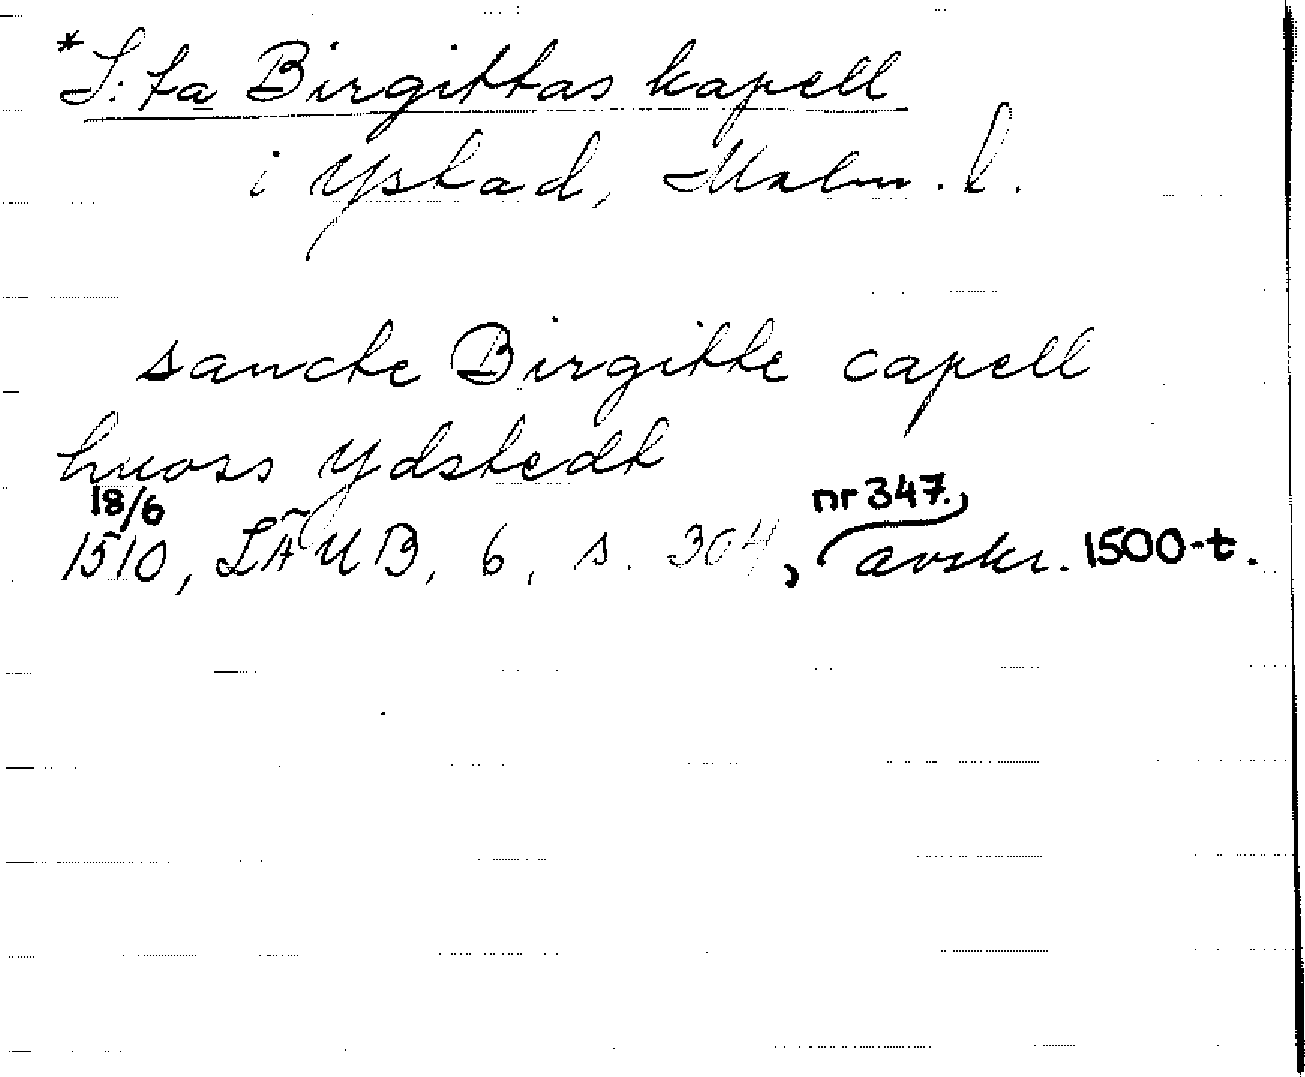 *S:ta Birgittas kapell
i Ystad, Malm. l.
sancte Birgitte capell
huoss Ydstedt
18/6 nr 347.
1510, LÄUB, 6, s. 304, avskr. 1500-t.